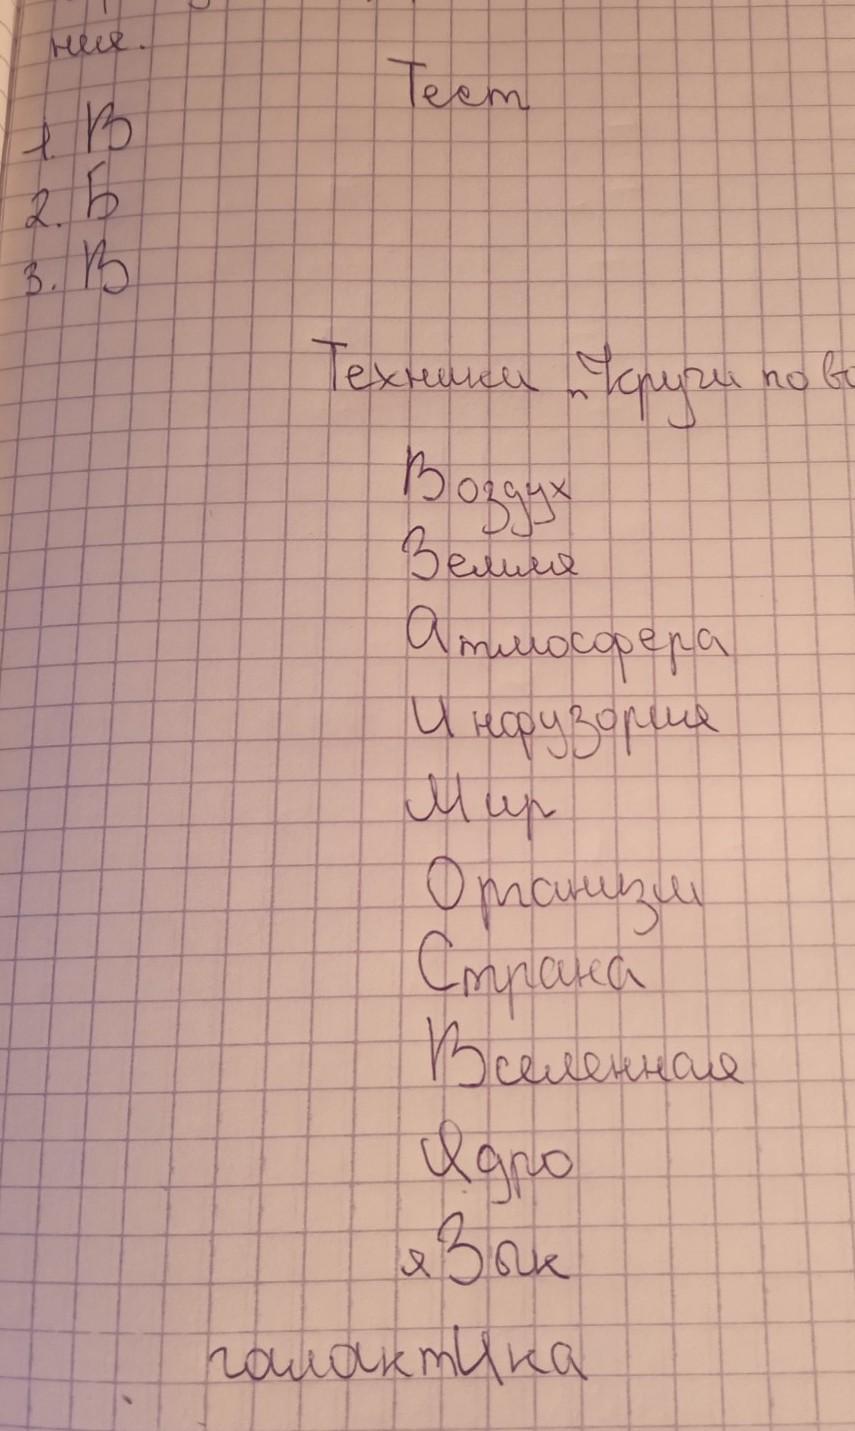 ния.
Тест
1. В
2. Б
3. В
Техники „Круги по во
Воздух
Земля
Атмосфера
Инфузория
Мир
Организм
Страна
Вселенная
Ядро
яЗык
галактИка